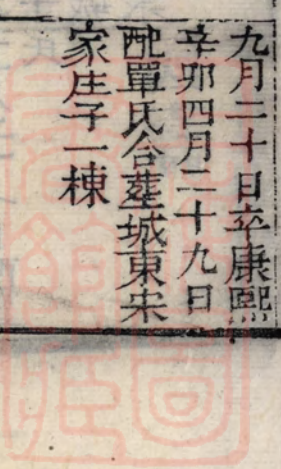 九月二十日卒康熙
辛卯四月二十九日
配單氏合塟城東宋
家庄子一棟